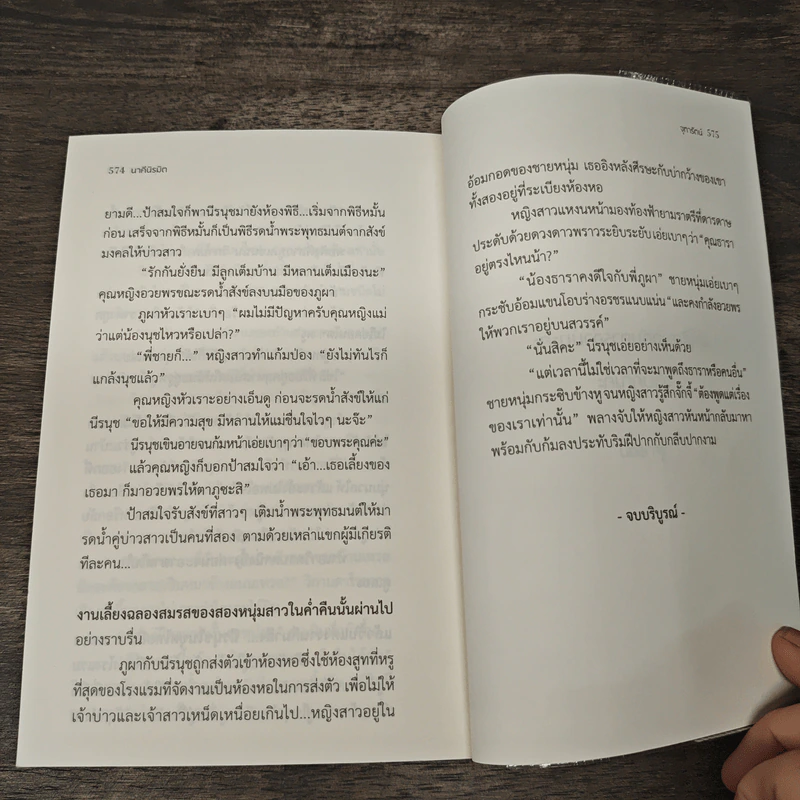 574 นาคีนิรมิต
ยามดี...ป้าสมใจก็พานีรนุชมายังห้องพิธี...เริ่มจากพิธีหมั้น
ก่อน เสร็จจากพิธีหมั้นก็เป็นพิธีรดน้ำพระพุทธมนต์จากสังข์
มงคลให้บ่าวสาว
“รักกันยั่งยืน มีลูกเต็มบ้าน มีหลานเต็มเมืองนะ”
คุณหญิงอวยพรขณะรดน้ำสังข์ลงบนมือของภูผา
ภูผาหัวเราะเบาๆ “ผมไม่มีปัญหาครับคุณหญิงแม่
ว่าแต่น้องนุชไหวหรือเปล่า?”
“พี่ชายก็...” หญิงสาวทำแก้มป่อง “ยังไม่ทันไรก็
แกล้งนุชแล้ว”
คุณหญิงหัวเราะอย่างเอ็นดู ก่อนจะรดน้ำสังข์ให้แก่
นีรนุช “ขอให้มีความสุข มีหลานให้แม่ชื่นใจไวๆ นะจ๊ะ”
นีรนุชเขินอายจนก้มหน้าเอ่ยเบาๆว่า “ขอบพระคุณค่ะ”
แล้วคุณหญิงก็บอกป้าสมใจว่า “เอ้า...เธอเลี้ยงของ
เธอมา ก็มาอวยพรให้ตาภูซะสิ”
ป้าสมใจรับสังข์ที่สาวๆ เติมน้ำพระพุทธมนต์ให้มา
รดน้ำคู่บ่าวสาวเป็นคนที่สอง ตามด้วยเหล่าแขกผู้มีเกียรติ
ทีละคน...
งานเลี้ยงฉลองสมรสของสองหนุ่มสาวในค่ำคืนนั้นผ่านไป
อย่างราบรื่น
ภูผากับนีรนุชถูกส่งตัวเข้าห้องหอ ซึ่งใช้ห้องสูทที่หรู
ที่สุดของโรงแรมที่จัดงานเป็นห้องหอในการส่งตัว เพื่อไม่ให้
เจ้าบ่าวและเจ้าสาวเหน็ดเหนื่อยเกินไป...หญิงสาวอยู่ใน
จุฑารัตน์ 575
อ้อมกอดของชายหนุ่ม เธออิงหลังศีรษะกับบ่ากว้างของเขา
ทั้งสองอยู่ที่ระเบียงห้องหอ
หญิงสาวแหงนหน้ามองท้องฟ้ายามราตรีที่ดารดาษ
ประดับด้วยดวงดาวพราวระยิบระยับ เอ่ยเบาๆว่า “คุณธารา
อยู่ตรงไหนน้า?”
“น้องธาราคงดีใจกับพี่ภูผา” ชายหนุ่มเอ่ยเบาๆ
กระชับอ้อมแขนโอบร่างอรชรแนบแน่น “และคงกำลังอวยพร
ให้พวกเราอยู่บนสวรรค์”
“นั่นสิคะ” นีรนุชเอ่ยอย่างเห็นด้วย
“แต่เวลานี้ไม่ใช่เวลาที่จะมาพูดถึงธาราหรือคนอื่น”
ชายหนุ่มกระซิบข้างหูจนหญิงสาวรู้สึกจั๊กจี้ “ต้องพูดแต่เรื่อง
ของเราเท่านั้น” พลางจับให้หญิงสาวหันหน้ากลับมาหา
พร้อมกับก้มลงประทับริมฝีปากกับกลีบปากงาม
- จบบริบูรณ์ -